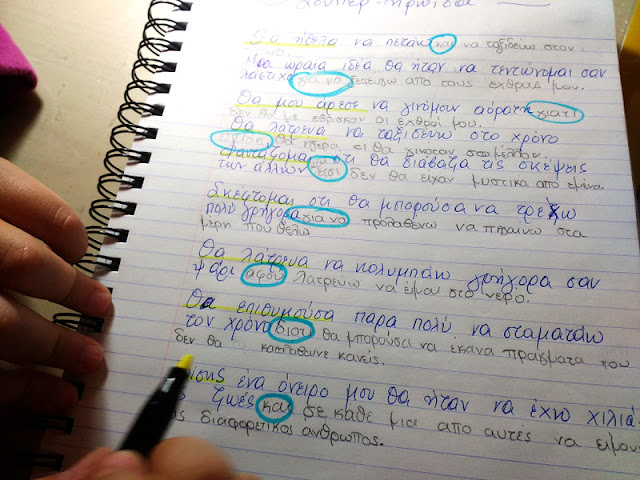 Σούπερ-ηρωίδα
Θα ήθελα να πετάω και να ταξιδεύω στον
Μια ωραία ιδέα θα ήταν να τεντώνομαι σαν
λάστιχο για να ξεφεύγω από τους εχθρούς μου.
Θα μου άρεσε να γινόμουν αόρατη γιατί
δεν θα με έβρισκαν οι εχθροί μου.
Θα λάτρευα να ταξιδεύω στο χρόνο
θα ήξερα, τι θα γινόταν στο μέλλον.
Φαντάζομαι ότι θα διάβαζα τις σκέψεις
των άλλων έτσι δεν θα είχαν μυστικά από εμένα.
Σκέφτομαι ότι θα μπορούσα να τρέχω
πολύ γρήγορα για να προλαβαίνω να πηγαίνω στα
μέρη που θέλω
Θα λάτρευα να κολυμπάω γρήγορα σαν
ψάρι αφού λατρεύω να είμαι στο νερό.
Θα επιθυμούσα πάρα πολύ να σταματάω
τον χρόνο διότι θα μπορούσα να έκανα πράγματα που
δεν θα καταλάβαινε κανείς.
ένα όνειρο μου θα ήταν να έχω χίλιά-
ζωές και σε κάθε μια από αυτές να είμουν
διαφορετικός άνθρωπος.